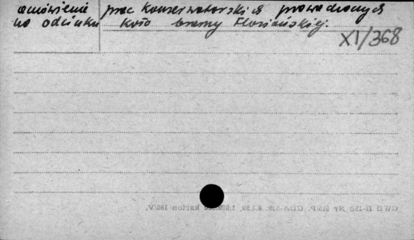 omówienie prac konserwatorskich prowadzonych
na odcinku koło bramy Floriańskiej.
XI/368